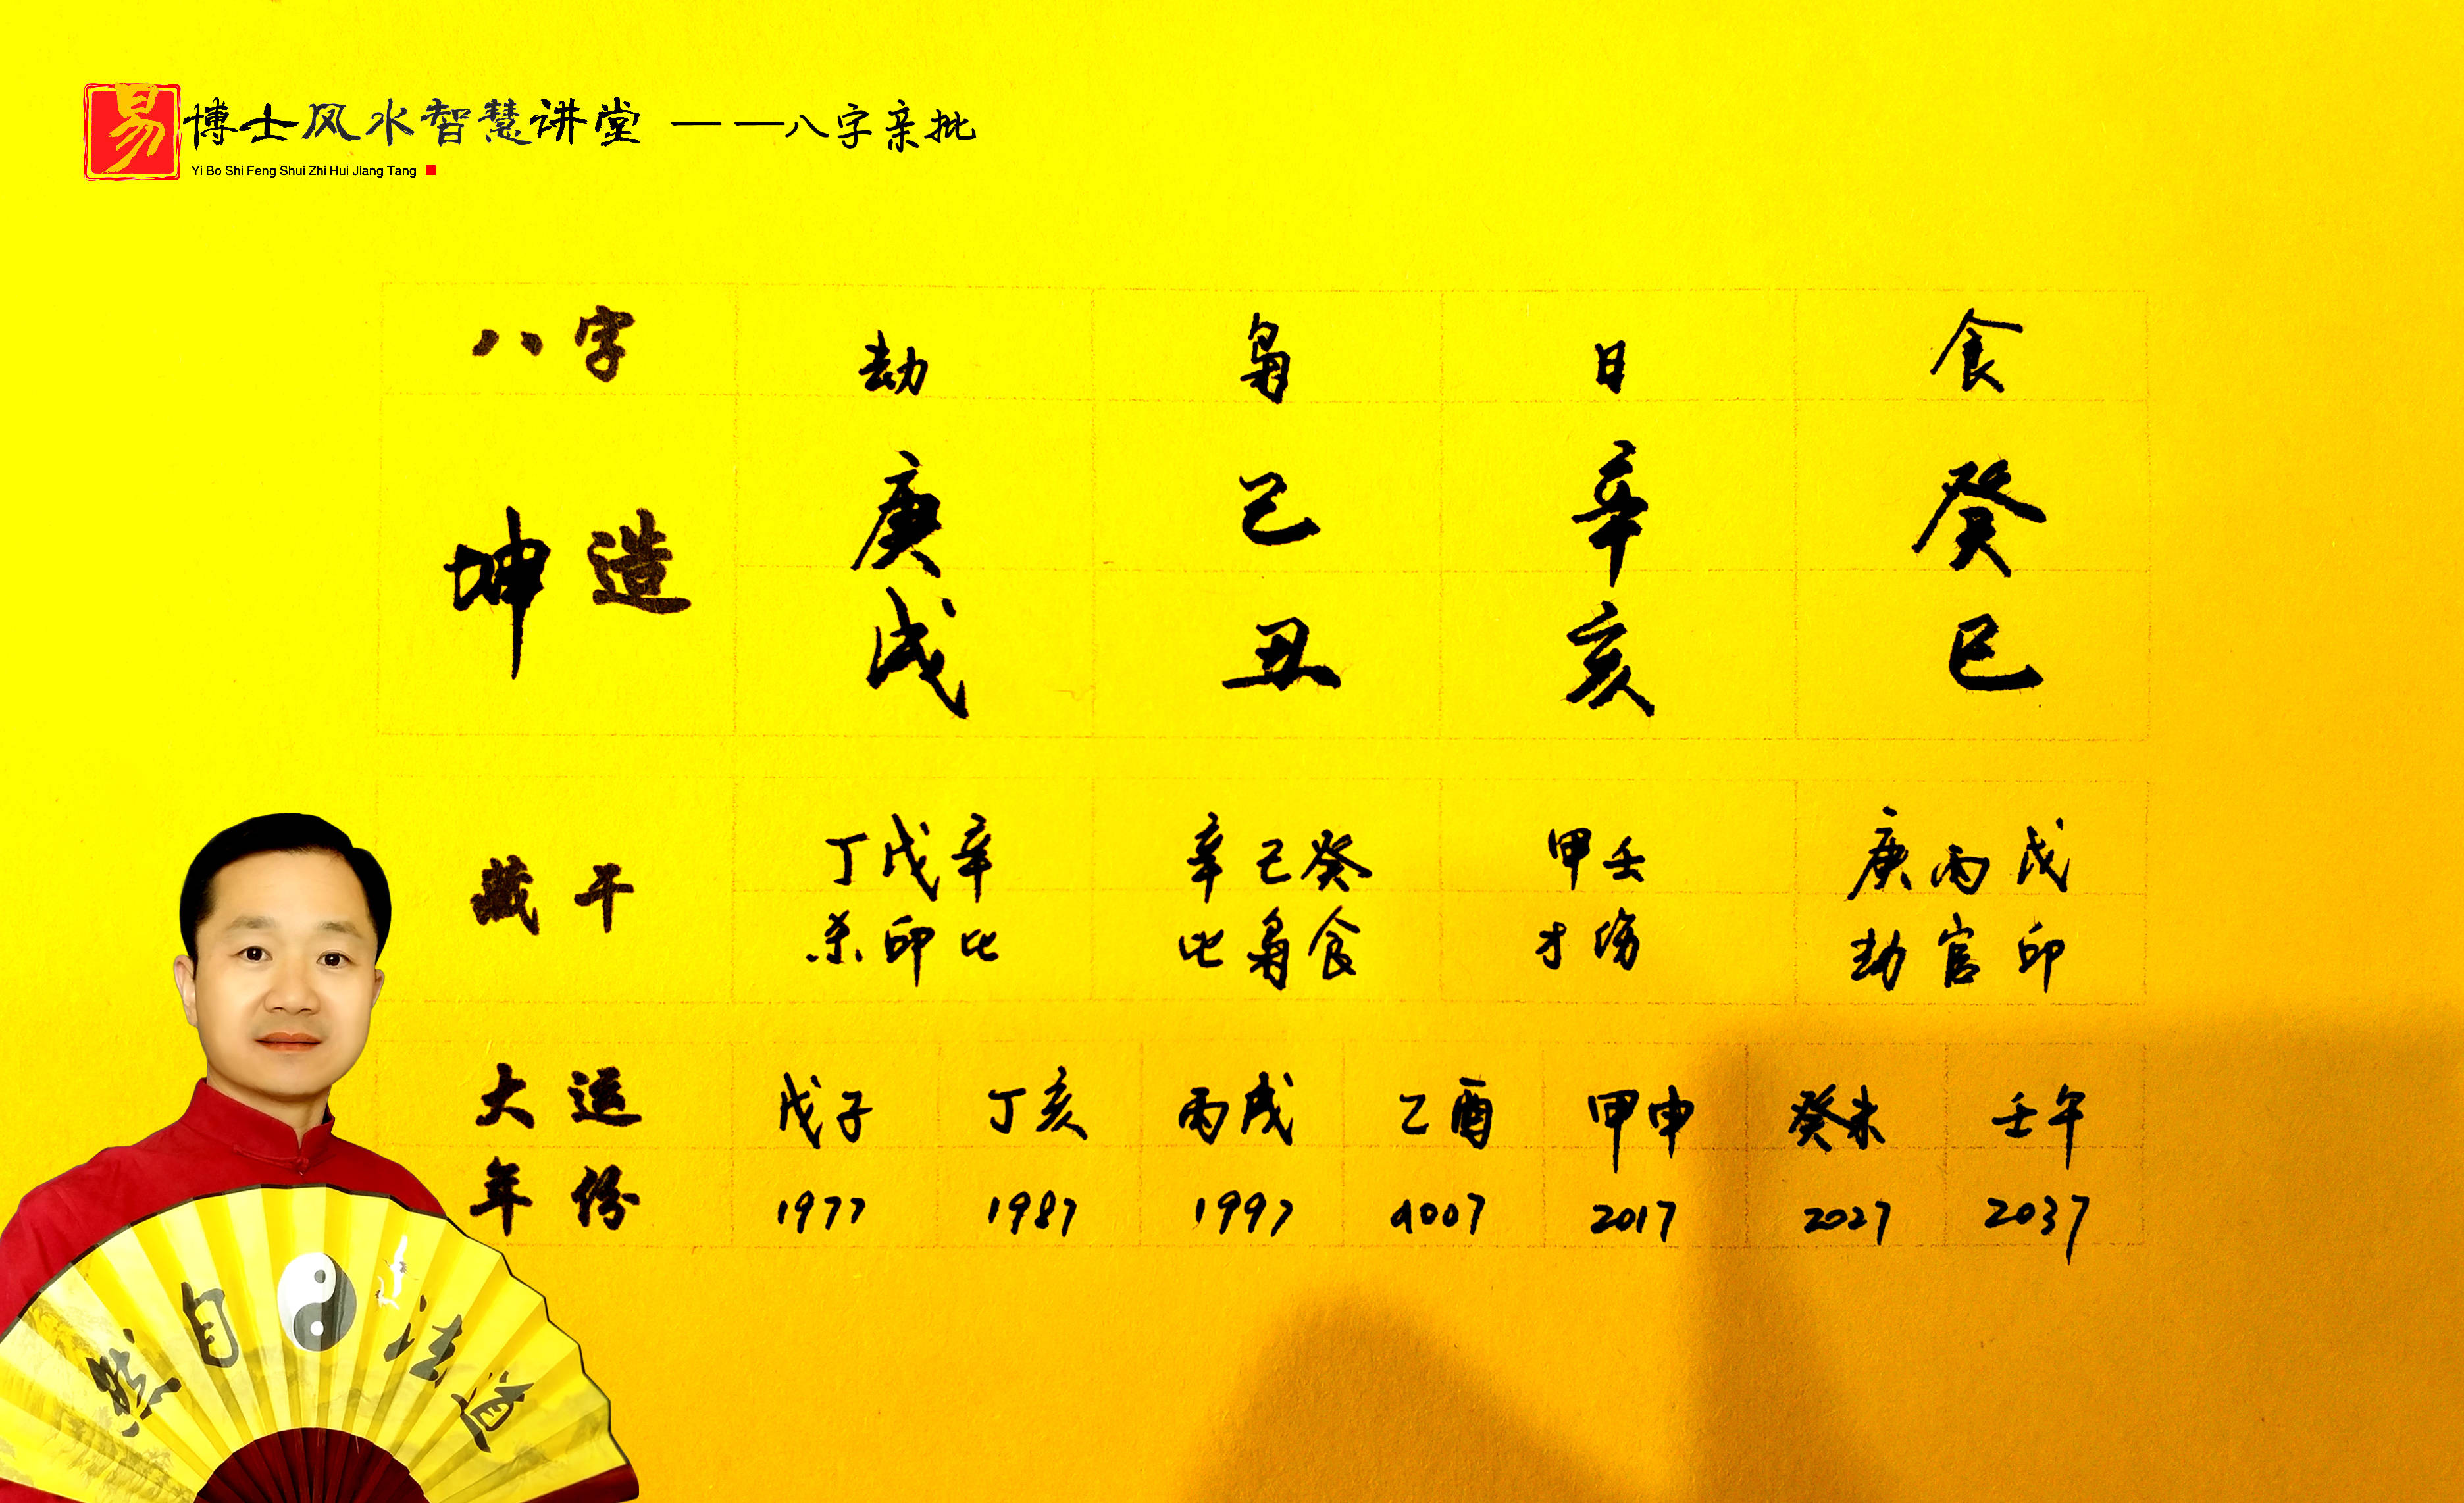 易博士风水智慧讲堂 ——八字亲批
Yi Bo Shi Feng Shui Zhi Hui Jiang Tang
八字 劫 枭 日 食
坤造 庚 己 辛 癸
戌 丑 亥 巳
藏干 丁戊辛 辛己癸 甲壬 庚丙戊
杀印比 比枭食 才伤 劫官印
大运 戊子 丁亥 丙戌 乙酉 甲申 癸未 壬午
年份 1977 1987 1997 2007 2017 2027 2037
然自法道